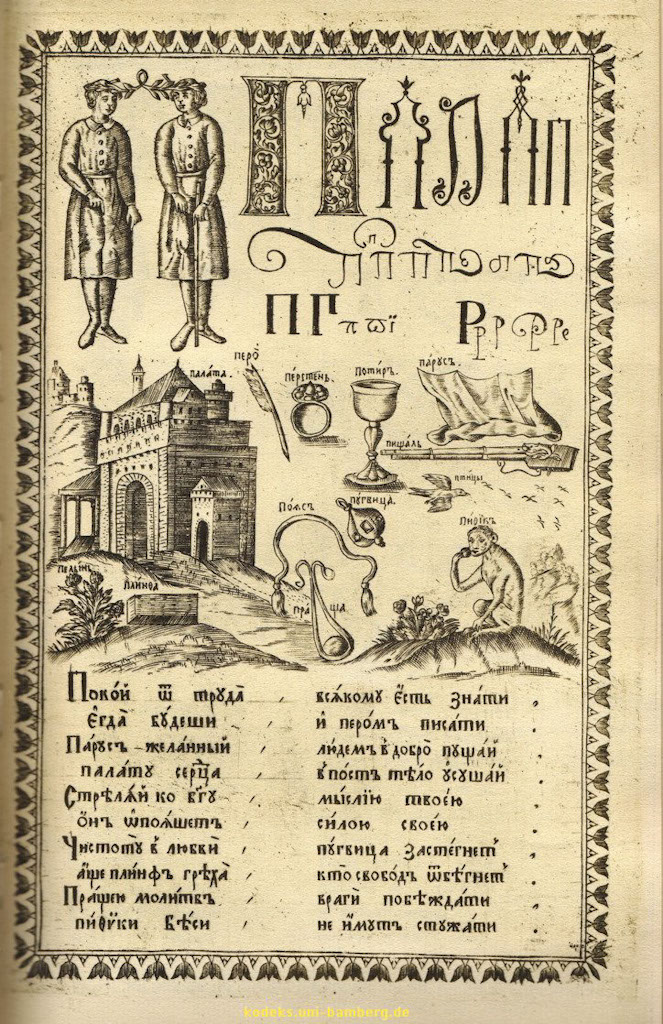 П
П П П П П
П Г π ѿ ї
Р р р Р р р е
перо
палата.
перстень.
потиръ.
парусъ.
пищаль
птицы
поясъ
пугвица.
пификъ
пелынь
плинѳа
праща
Поко́й ѿ трꙋда̀ , вся́комꙋ є҆́сть зна́ти
Є҆гда̀ бꙋ́деши , и҆ перо́мъ писа́ти
Па́рꙋсъ жела́нный , лю́демъ в добро̀ пꙋща́й
пала́тꙋ се́рца , в постъ тѣ́ло ᲂу҆сꙋша́й
Стрѣлѧ́й ко бг҃ꙋ , мы́слїю твое́ю
о҆́нъ ѡ҆поѧ́шетъ , си́лою свое́ю
Чистотꙋ̀ в любвѝ , пꙋ́гвица засте́гнетъ
а҆́ще пли́нѳъ грѣха̀ , кто̀ свобо́дъ ѿбѣ́гнетъ
Пра́щею моли́твъ , врагѝ побѣжда́ти
пиѳи́ки бѣ́си , не и҆́мꙋтъ стꙋжа́ти
kodeks.uni-bamberg.de